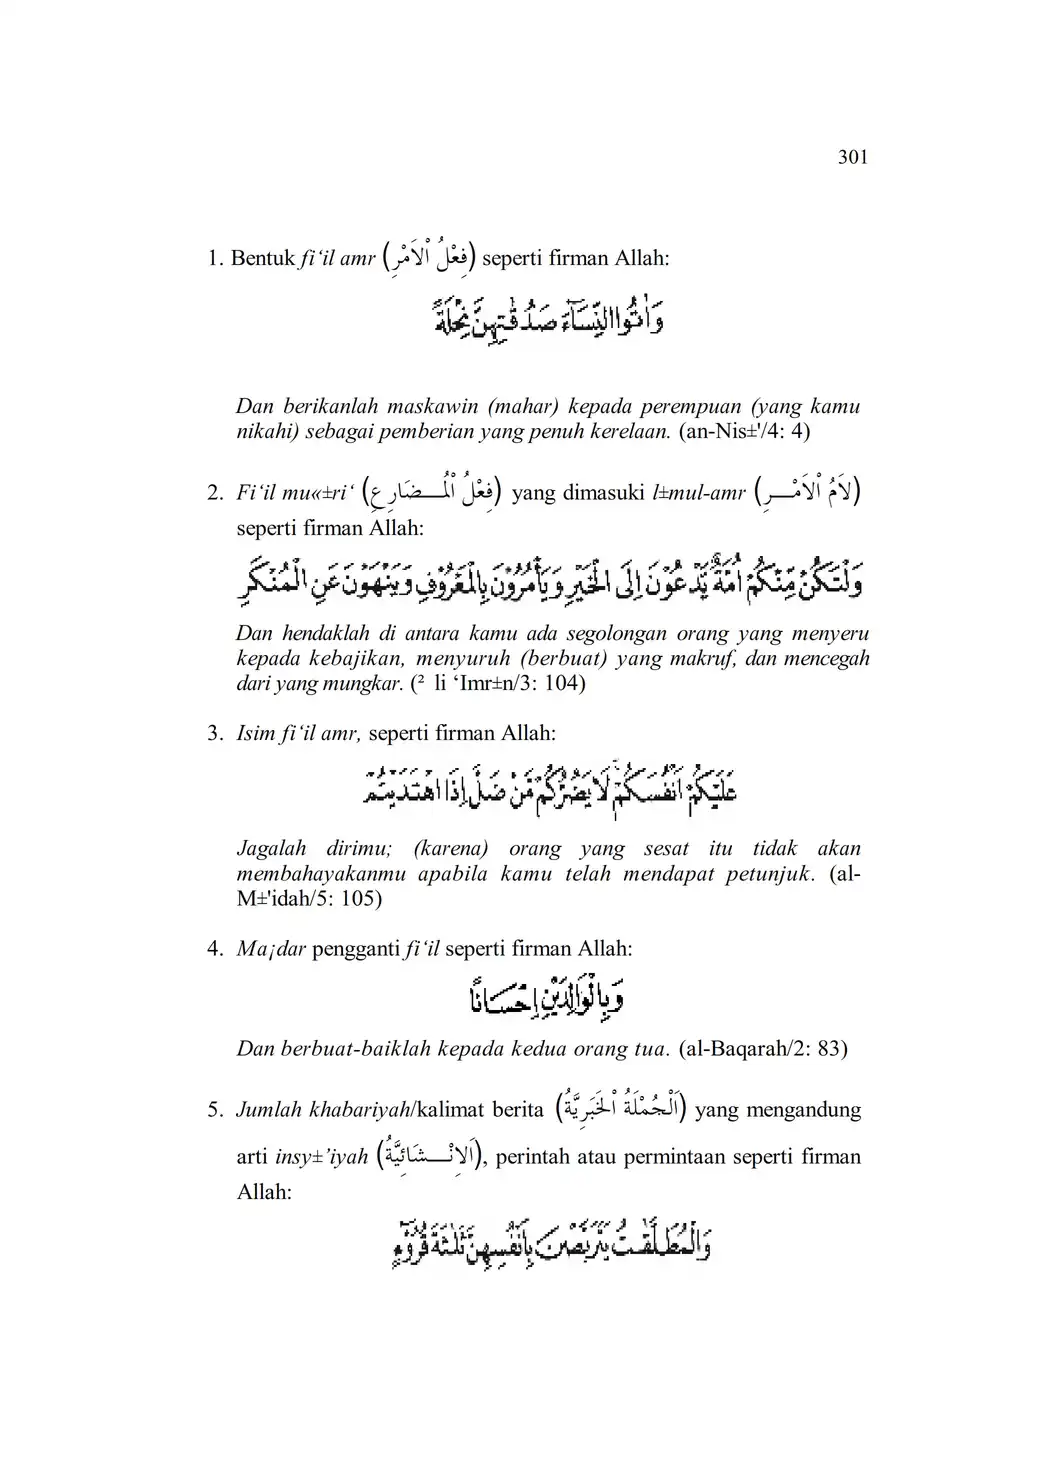 301
1. Bentuk fi‘il amr (فِعْلُ اْلاَمْرِ) seperti firman Allah:
وَاٰتُوا النِّسَاۤءَ صَدُقٰتِهِنَّ نِحْلَةً
Dan berikanlah maskawin (mahar) kepada perempuan (yang kamu
nikahi) sebagai pemberian yang penuh kerelaan. (an-Nis±'/4: 4)
2. Fi‘il mu«±ri‘ (فِعْلُ اْلمُـــضَارِعِ) yang dimasuki l±mul-amr (لاَمُ اْلاَمْـــرِ)
seperti firman Allah:
وَلْتَكُنْ مِّنْكُمْ اُمَّةٌ يَّدْعُوْنَ اِلَى الْخَيْرِ وَيَأْمُرُوْنَ بِالْمَعْرُوْفِ وَيَنْهَوْنَ عَنِ الْمُنْكَرِ
Dan hendaklah di antara kamu ada segolongan orang yang menyeru
kepada kebajikan, menyuruh (berbuat) yang makruf, dan mencegah
dari yang mungkar. (² li ‘Imr±n/3: 104)
3. Isim fi‘il amr, seperti firman Allah:
عَلَيْكُمْ اَنْفُسَكُمْ ۚ لَا يَضُرُّكُمْ مَّنْ ضَلَّ اِذَا اهْتَدَيْتُمْ
Jagalah dirimu; (karena) orang yang sesat itu tidak akan
membahayakanmu apabila kamu telah mendapat petunjuk. (al-
M±'idah/5: 105)
4. Ma¡dar pengganti fi‘il seperti firman Allah:
وَبِالْوَالِدَيْنِ اِحْسَانًا
Dan berbuat-baiklah kepada kedua orang tua. (al-Baqarah/2: 83)
5. Jumlah khabariyah/kalimat berita (اَلْجُمْلَةُ اْلخَبَرِيَّةُ) yang mengandung
arti insy±’iyah (اَلاِنْـــشَائِيَّةُ), perintah atau permintaan seperti firman
Allah:
وَالْمُطَلَّقٰتُ يَتَرَبَّصْنَ بِاَنْفُسِهِنَّ ثَلٰثَةَ قُرُوْۤءٍ